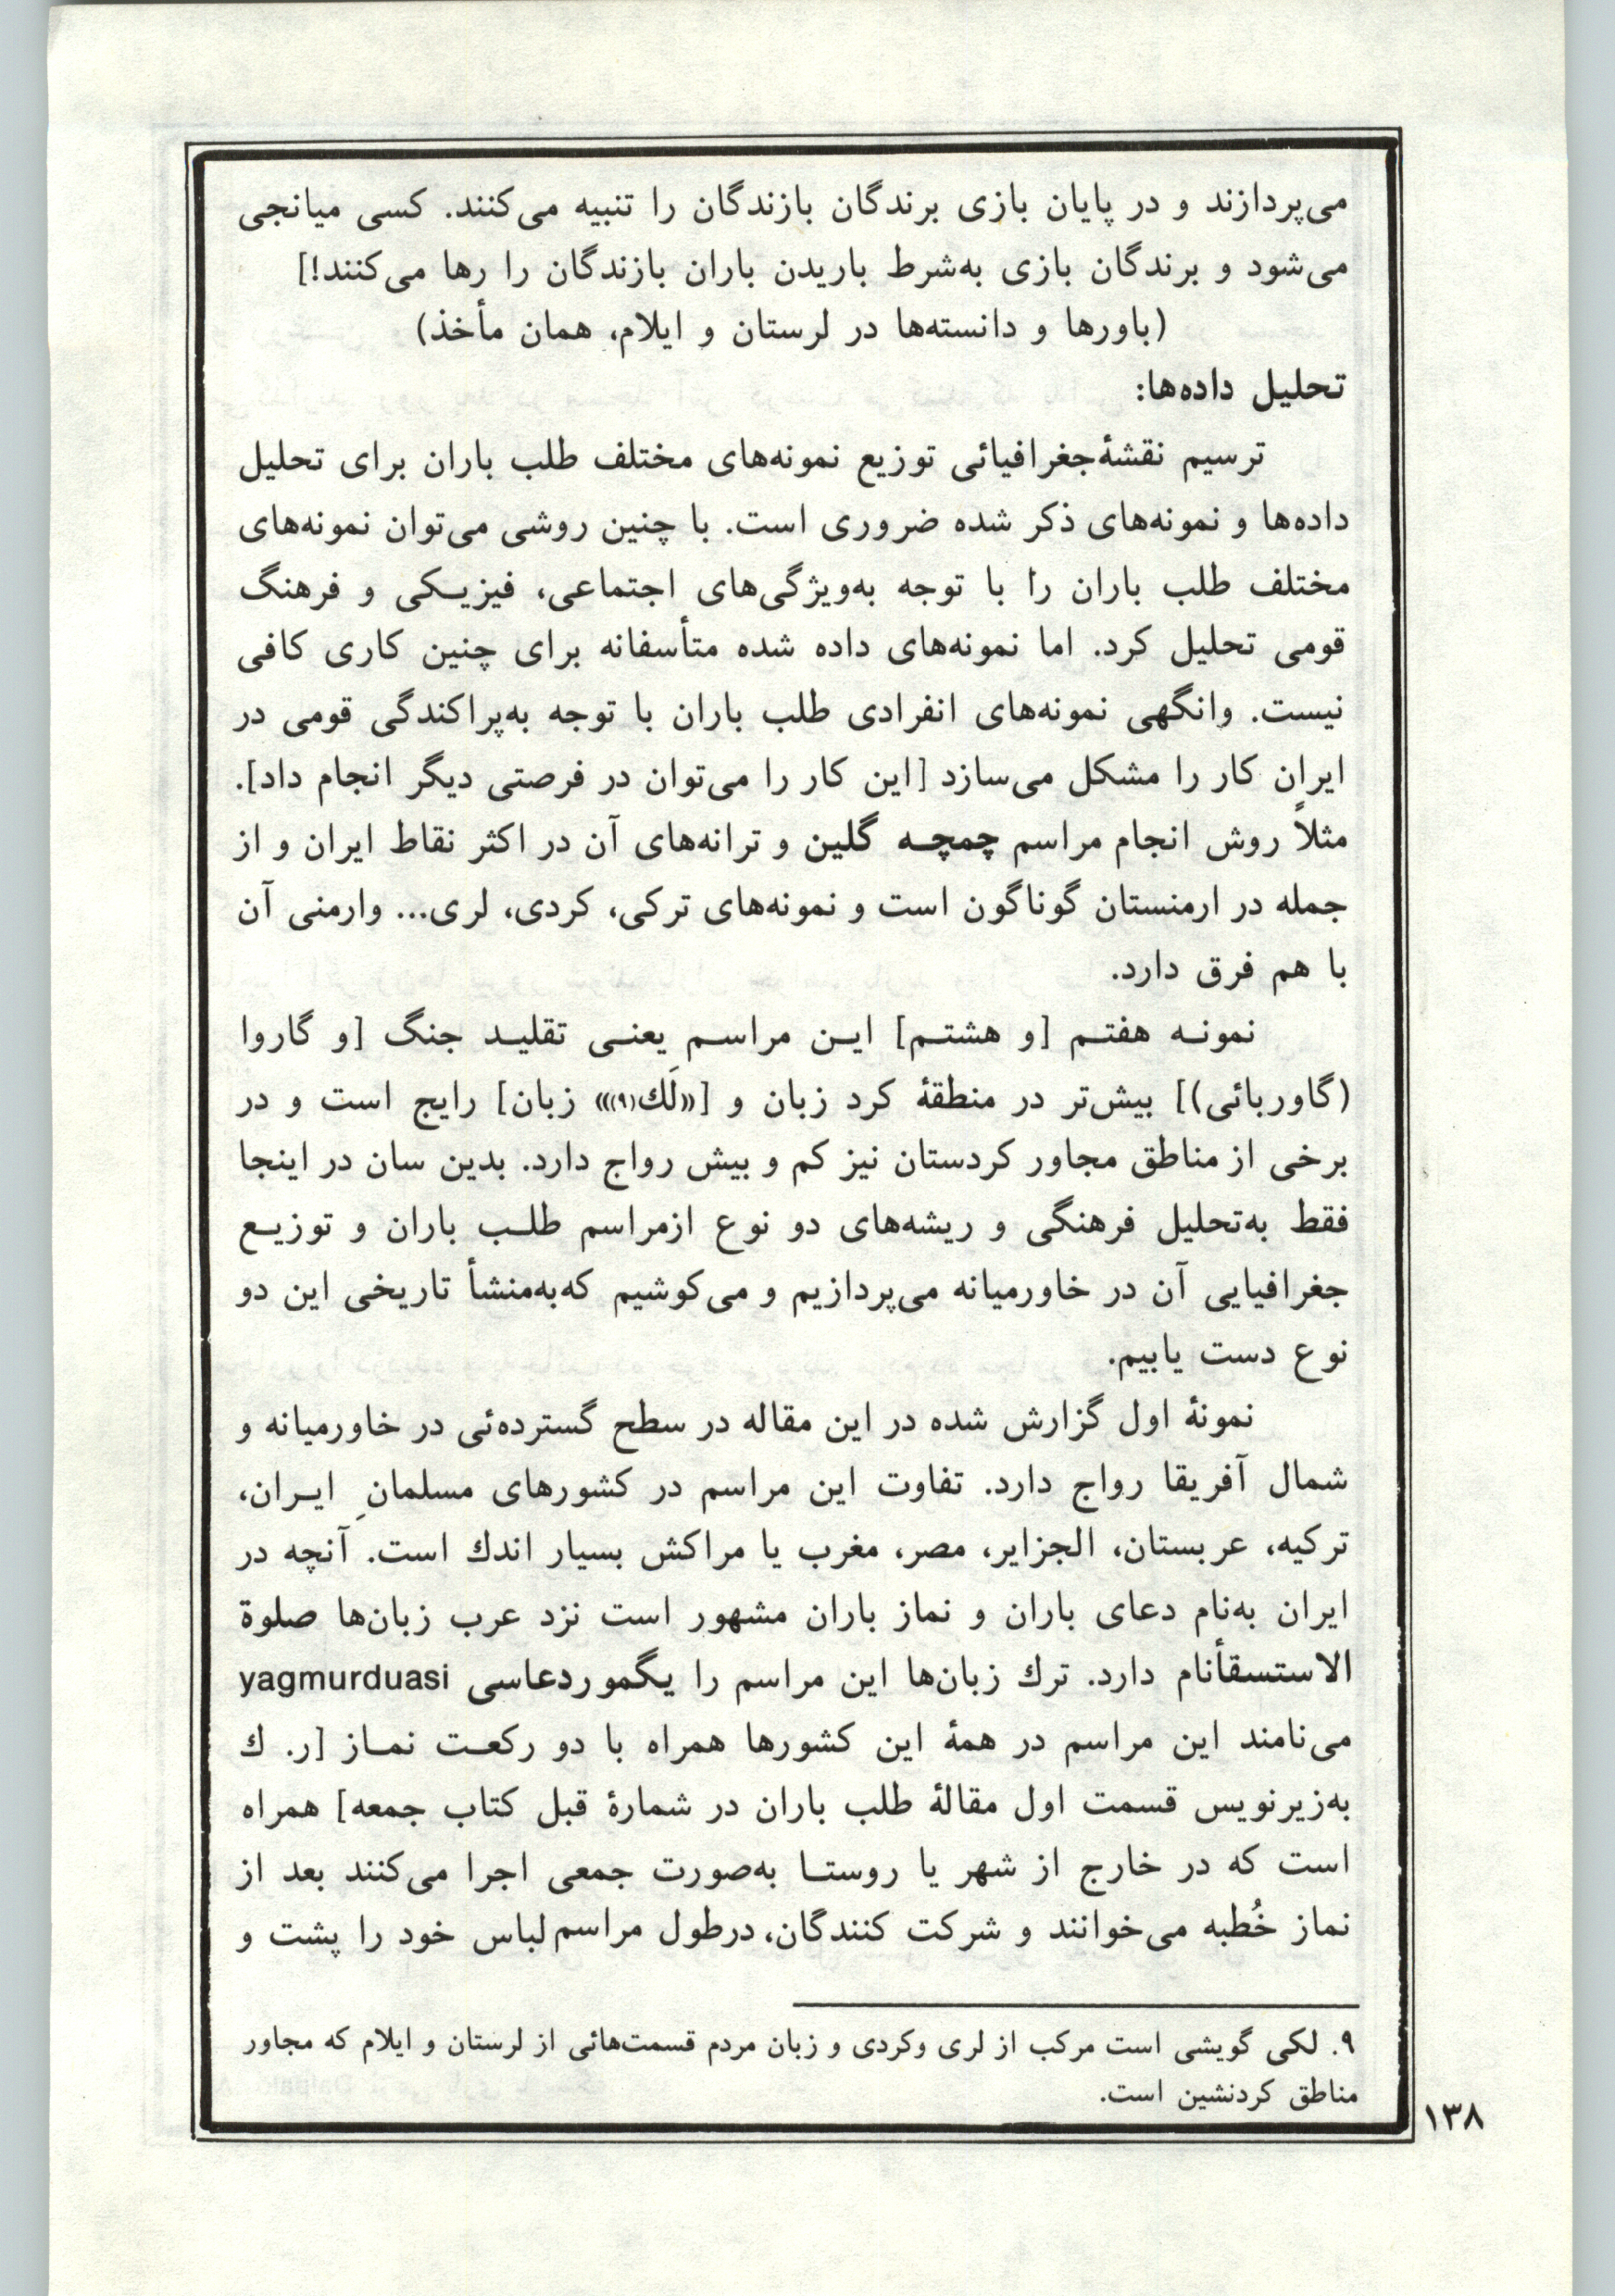 می‌پردازند و در پایان بازی برندگان بازندگان را تنبیه می‌کنند. کسی میانجی
می‌شود و برندگان بازی به‌شرط باریدن باران بازندگان را رها می‌کنند!]
(باورها و دانسته‌ها در لرستان و ایلام، همان مأخذ)
تحلیل داده‌ها:
ترسیم نقشهٔ‌جغرافیائی توزیع نمونه‌های مختلف طلب باران برای تحلیل
داده‌ها و نمونه‌های ذکر شده ضروری است. با چنین روشی می‌توان نمونه‌های
مختلف طلب باران را با توجه به‌ویژگی‌های اجتماعی، فیزیـکی و فرهنگ
قومی تحلیل کرد. اما نمونه‌های داده شده متأسفانه برای چنین کاری کافی
نیست. وانگهی نمونه‌های انفرادی طلب باران با توجه به‌پراکندگی قومی در
ایران کار را مشکل می‌سازد [این کار را می‌توان در فرصتی دیگر انجام داد].
مثلاً روش انجام مراسم چمچـه گلین و ترانه‌های آن در اکثر نقاط ایران و از
جمله در ارمنستان گوناگون است و نمونه‌های ترکی، کردی، لری... وارمنی آن
با هم فرق دارد.
نمونـه هفتـم [و هشتـم] ایـن مراسـم یعنـی تقلیـد جنگ [و گاروا
(گاوربائی)] بیش‌تر در منطقهٔ کرد زبان و [«لَك(۹)» زبان] رایج است و در
برخی از مناطق مجاور کردستان نیز کم و بیش رواج دارد. بدین سان در اینجا
فقط به‌تحلیل فرهنگی و ریشه‌های دو نوع ازمراسم طلـب باران و توزیـع
جغرافیایی آن در خاورمیانه می‌پردازیم و می‌کوشیم که‌به‌منشأ تاریخی این دو
نوع دست یابیم.
نمونهٔ اول گزارش شده در این مقاله در سطح گسترده‌ئی در خاورمیانه و
شمال آفریقا رواج دارد. تفاوت این مراسم در کشورهای مسلمانِ ایـران،
ترکیه، عربستان، الجزایر، مصر، مغرب یا مراکش بسیار اندك است. آنچه در
ایران به‌نام دعای باران و نماز باران مشهور است نزد عرب زبان‌ها صلوة
الاستسقأنام دارد. ترك زبان‌ها این مراسم را یگموردعاسی yagmurduasi
می‌نامند این مراسم در همهٔ این کشورها همراه با دو رکعـت نمـاز [ر. ك
به‌زیرنویس قسمت اول مقالهٔ طلب باران در شمارهٔ قبل کتاب جمعه] همراه
است که در خارج از شهر یا روستـا به‌صورت جمعی اجرا می‌کنند بعد از
نماز خُطبه می‌خوانند و شرکت کنندگان، درطول مراسم لباس خود را پشت و
۹. لکی گویشی است مرکب از لری وکردی و زبان مردم قسمت‌هائی از لرستان و ایلام که مجاور
مناطق کردنشین است.
۱۳۸